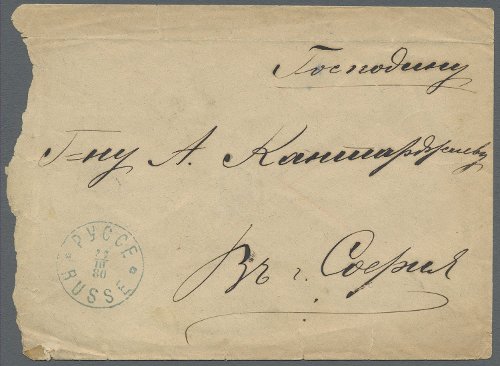 Господину
Г=ну А. Кантарджиеву
Въ г. София
РУССЕ
III
80
RUSSE